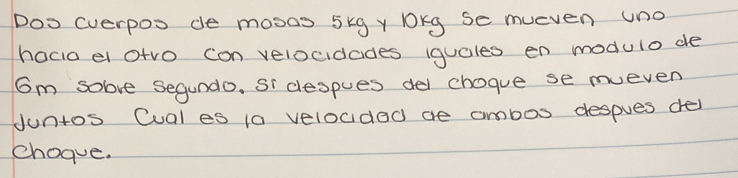 Dos cuerpos de masas 5kg y 10kg se mueven uno
hacia el otro con velocidades iguales en modulo de
6m sobre segundo. Si despues del choque se mueven
juntos Cual es la velocidad de ambos despues del
choque.